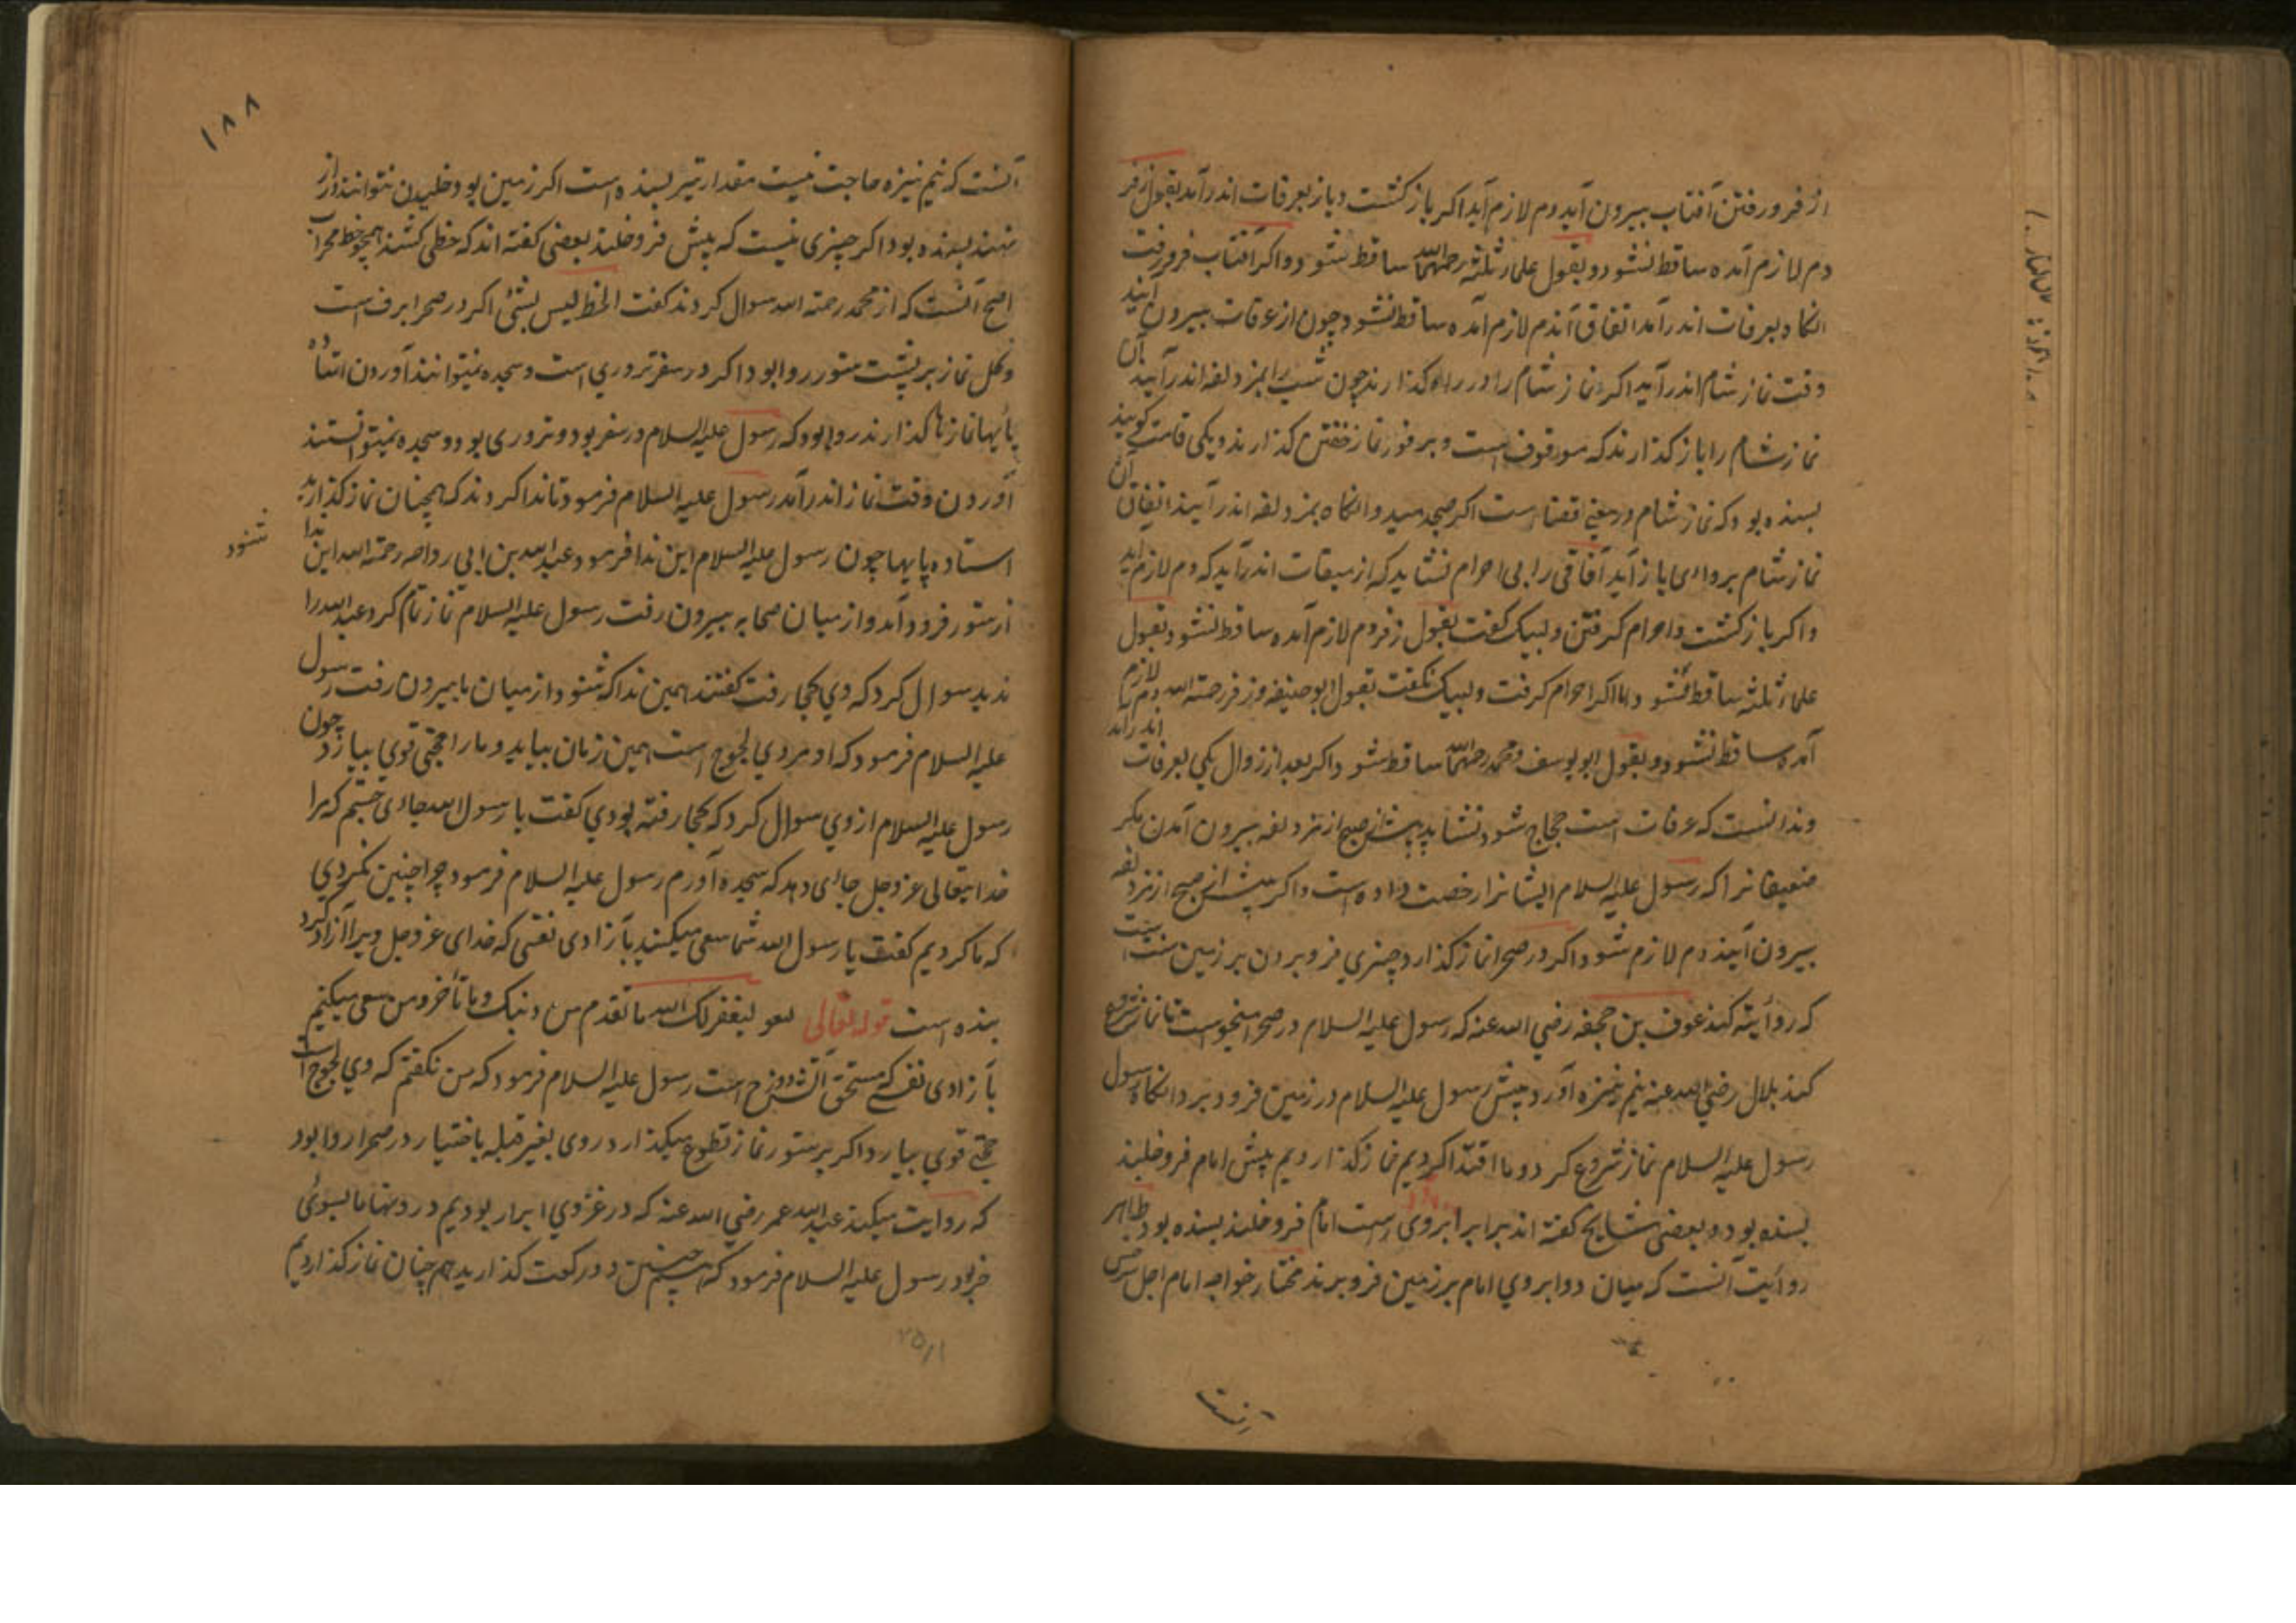 از فرو رفتن آفتاب بیرون آید دم لازم آید اکر باز کشت و باز بعرفات اندر آمد بقول زفر
دم لازم آمده ساقط نشود و بقول علماء ثلثه رحمهم الله ساقط شود و اکر آفتاب فرو رفت
انکاه بعرفات اندر آمد اتفاق آن دم لازم آمده ساقط نشود و چون از عرفات بیرون آیند
وقت نماز شام اندر آید اکر نماز شام را در راه کذارند چون شب را بمزدلفه اندر آیند آن
نماز شام را باز کذارند که موقوف است و بر فور نماز خفتن کذارند و یکی قامت کویند
بسنده بود که نماز شام در معنی قضا است اکر صبح دمید و انکاه بمزدلفه اندر آیند اتفاق آن
نماز شام بروادی باز آید آفاقی را بی احرام نشاید که از میقات اندر آید که دم لازم آید
و اکر باز کشت و احرام کرفتن و لبیک کفت بقول زفر دم لازم آمده ساقط نشود و بقول
علماء ثلثه ساقط شود و اما اکر احرام کرفت و لبیک نکفت بقول ابو حنیفه و زفر رحمة الله دم لازم
آمده ساقط نشود و بقول ابو یوسف و محمد رحمهما الله ساقط شود و اکر بعد از زوال یکی بعرفات اندر آمد
و ندانست که عرفات است حجاج شود نشاید پیش از صبح از مزدلفه بیرون آمدن مکر
ضعیفانرا که رسول علیه السلام ایشانرا رخصت داده است و اکر پیش از صبح از مزدلفه
بیرون آیند دم لازم شود و اکر در صحرا نماز کذارد چیزی فرو بردن بر زمین سنت است
که روایت کند عوف بن جحفه رضی الله عنه که رسول علیه السلام در صحرا میخواست تا نماز شروع
کند بلال رضی الله عنه نیم نیزه آورد و پیش رسول علیه السلام در زمین فرود برد و انکاه رسول
رسول علیه السلام نماز شروع کرد و ما اقتدا کردیم نماز کذاردیم پیش امام فرو خلیند
بسنده بود و بعضی مشایخ کفته اند برابر ابروی راست امام فرو خلیند بسنده بود ظاهر
روایت آنست که میان دو ابروی امام بر زمین فرو برند مختار خواجه امام اجل سرخسی
آنست
۱۸۸
آنست که نیم نیزه حاجت نیست مقدار تیر بسنده است اکر زمین بود و خلیدن نتوانند دراز
نهند بسنده بود و اکر چیزی نیست که پیش فرو خلیند بعضی کفته اند که خطی کشند همچو خط محراب
اصح آنست که از محمد رحمة الله سوال کردند کفت الخط لیس بشئ اکر در صحرا برف است
و کل نماز بر پشت ستور روا بود و اکر در سفر تروری است و سجده نمیتوانند آوردن استاده
پایها نمازها کذارند روا بود که رسول علیه السلام در سفر بود و تروری بود و سجده نمیتوانستند
آوردن وقت نماز اندر آمد رسول علیه السلام فرمود تا ندا کردند که همچنان نماز کذارید
استاده پایها چون رسول علیه السلام این ندا فرمود عبد الله بن ابی رواحه رحمة الله این ندا
شنود
از ستور فرود آمد و از میان صحابه بیرون رفت رسول علیه السلام نماز تمام کرد عبد الله را
ندید سوال کرد که وی کجا رفت کفتند همین ندا که شنود از میان ما بیرون رفت رسول
علیه السلام فرمود که او مردی لجوج است همین زمان بیاید و ما را حجتی قوی بیارد چون
رسول علیه السلام از وی سوال کرد که کجا رفته بودی کفت یا رسول الله جائی جستم که مرا
خدایتعالی عز و جل جائی دهد که سجده آورم رسول علیه السلام فرمود چرا چنین نکردی
که ما کردیم کفت یا رسول الله شما سعی میکنید بآزادی نفسی که خدای عز و جل ویرا آزاد کرد
بنده است قوله تعالی لیغفر لک الله ما تقدم من ذنبک و ما تأخر و من سعی میکنیم
بآزادی نفسی که مستحق آتش دوزخ است رسول علیه السلام فرمود که من نکفتم که وی لجوج است
حجتی قوی بیارد و اکر بر ستور نماز تطوع میکذارد روی بغیر قبله باختیار در صحرا روا بود
که روایت میکند عبد الله عمر رضی الله عنه که در غزوی ابرار بودیم و رویها ما بسوئی
خر بود رسول علیه السلام فرمود که همچنین دو رکعت کذارید همچنان نماز کذاردیم